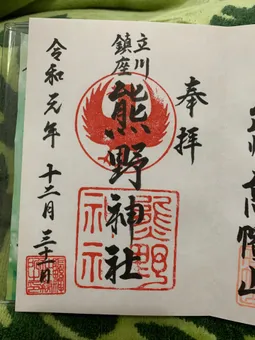 高幡山
奉拝
立川
鎮座
熊野神社
熊野
神社
令和元年 十二月 三十一日